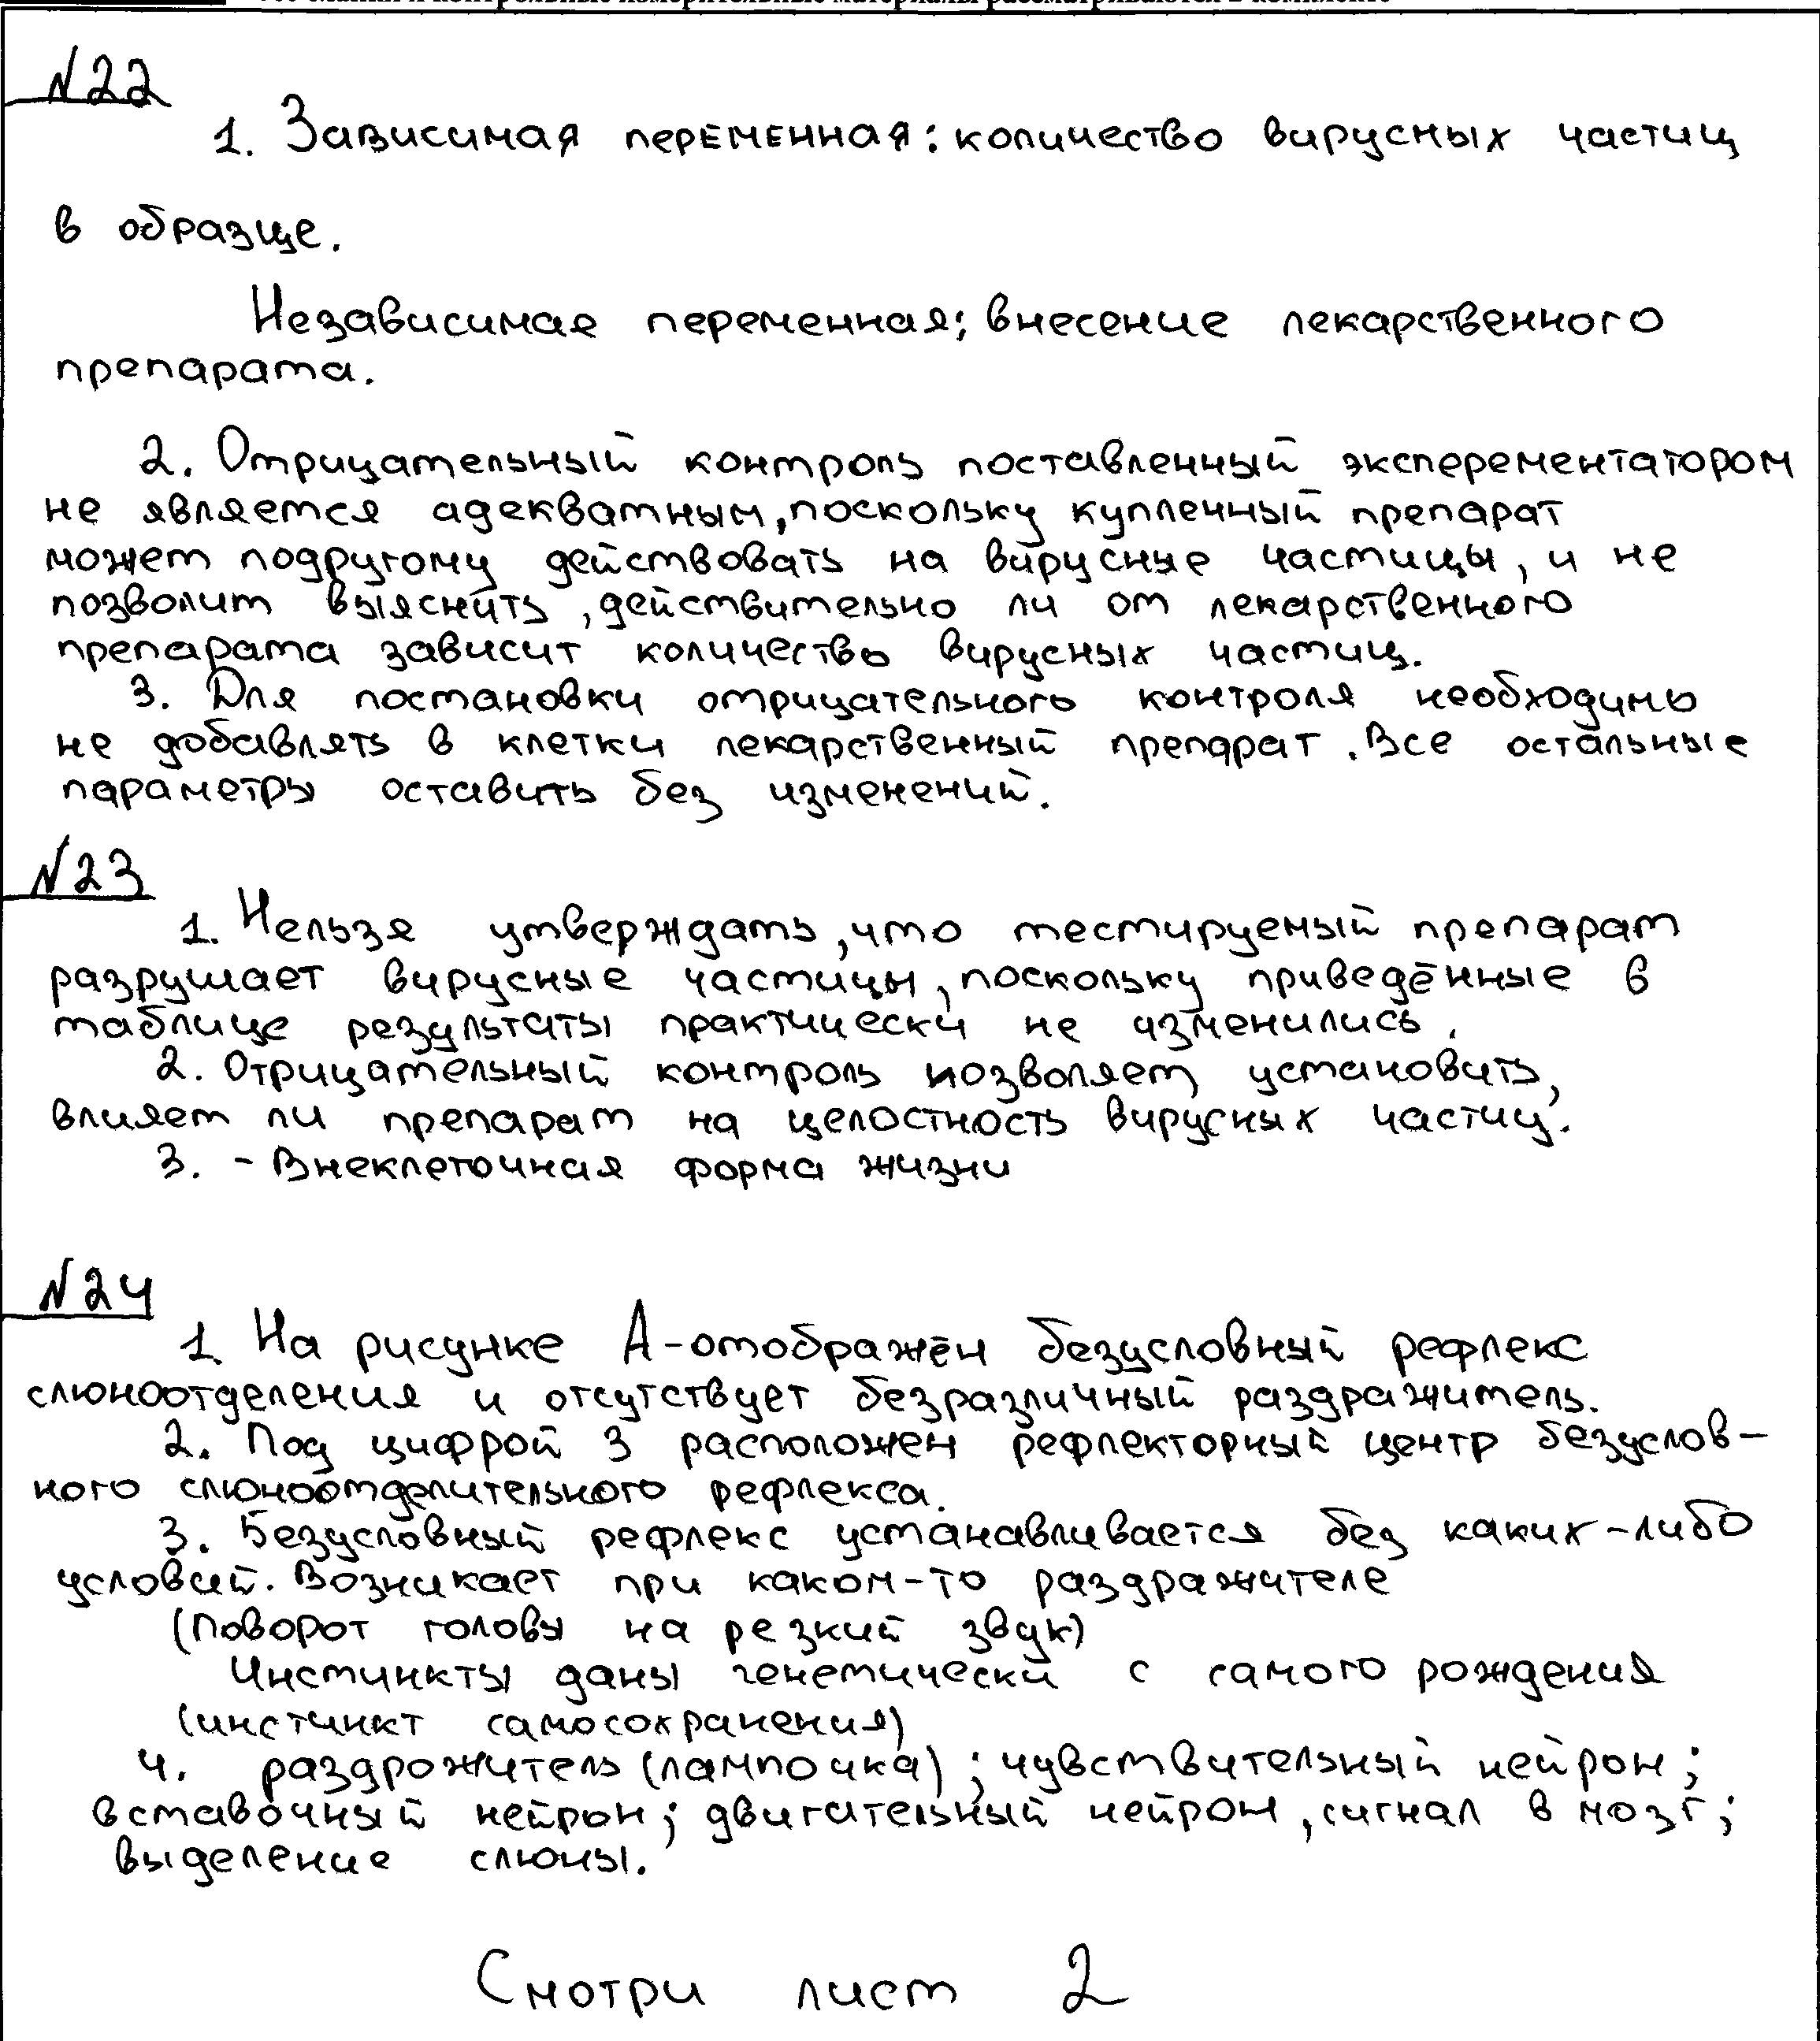 №22
1. Зависимая переменная: количество вирусных частиц
в образце.
Независимая переменная; внесение лекарственного
препарата.
2. Отрицательный контроль поставленный эксперементатором
не является адекватным, поскольку купленный препарат
может подругому действовать на вирусные частицы, и не
позволит выяснить, действительно ли от лекарственного
препарата зависит количество вирусных частиц.
3. Для постановки отрицательного контроля необходимо
не добавлять в клетки лекарственный препарат. Все остальные
параметры оставить без изменений.
№23
1. Нельзя утверждать, что тестируемый препарат
разрушает вирусные частицы, поскольку приведённые в
таблице результаты практически не изменились.
2. Отрицательный контроль позволяет установить,
влияет ли препарат на целостность вирусных частиц.
3. - Внеклеточная форма жизни
№24
1. На рисунке А-отображён безусловный рефлекс
слюноотделения и отсутствует безразличный раздражитель.
2. Под цифрой 3 расположен рефлекторный центр безуслов-
ного слюноотделительного рефлекса.
3. Безусловный рефлекс устанавливается без каких-либо
условий. Возникает при каком-то раздражителе
(Поворот головы на резкий звук)
Инстинкты даны генетически с самого рождения
(инстинкт самосохранения)
4. раздрожитель (лампочка); чувствительный нейрон;
вставочный нейрон; двигательный нейрон, сигнал в мозг;
выделение слюны.
Смотри лист 2